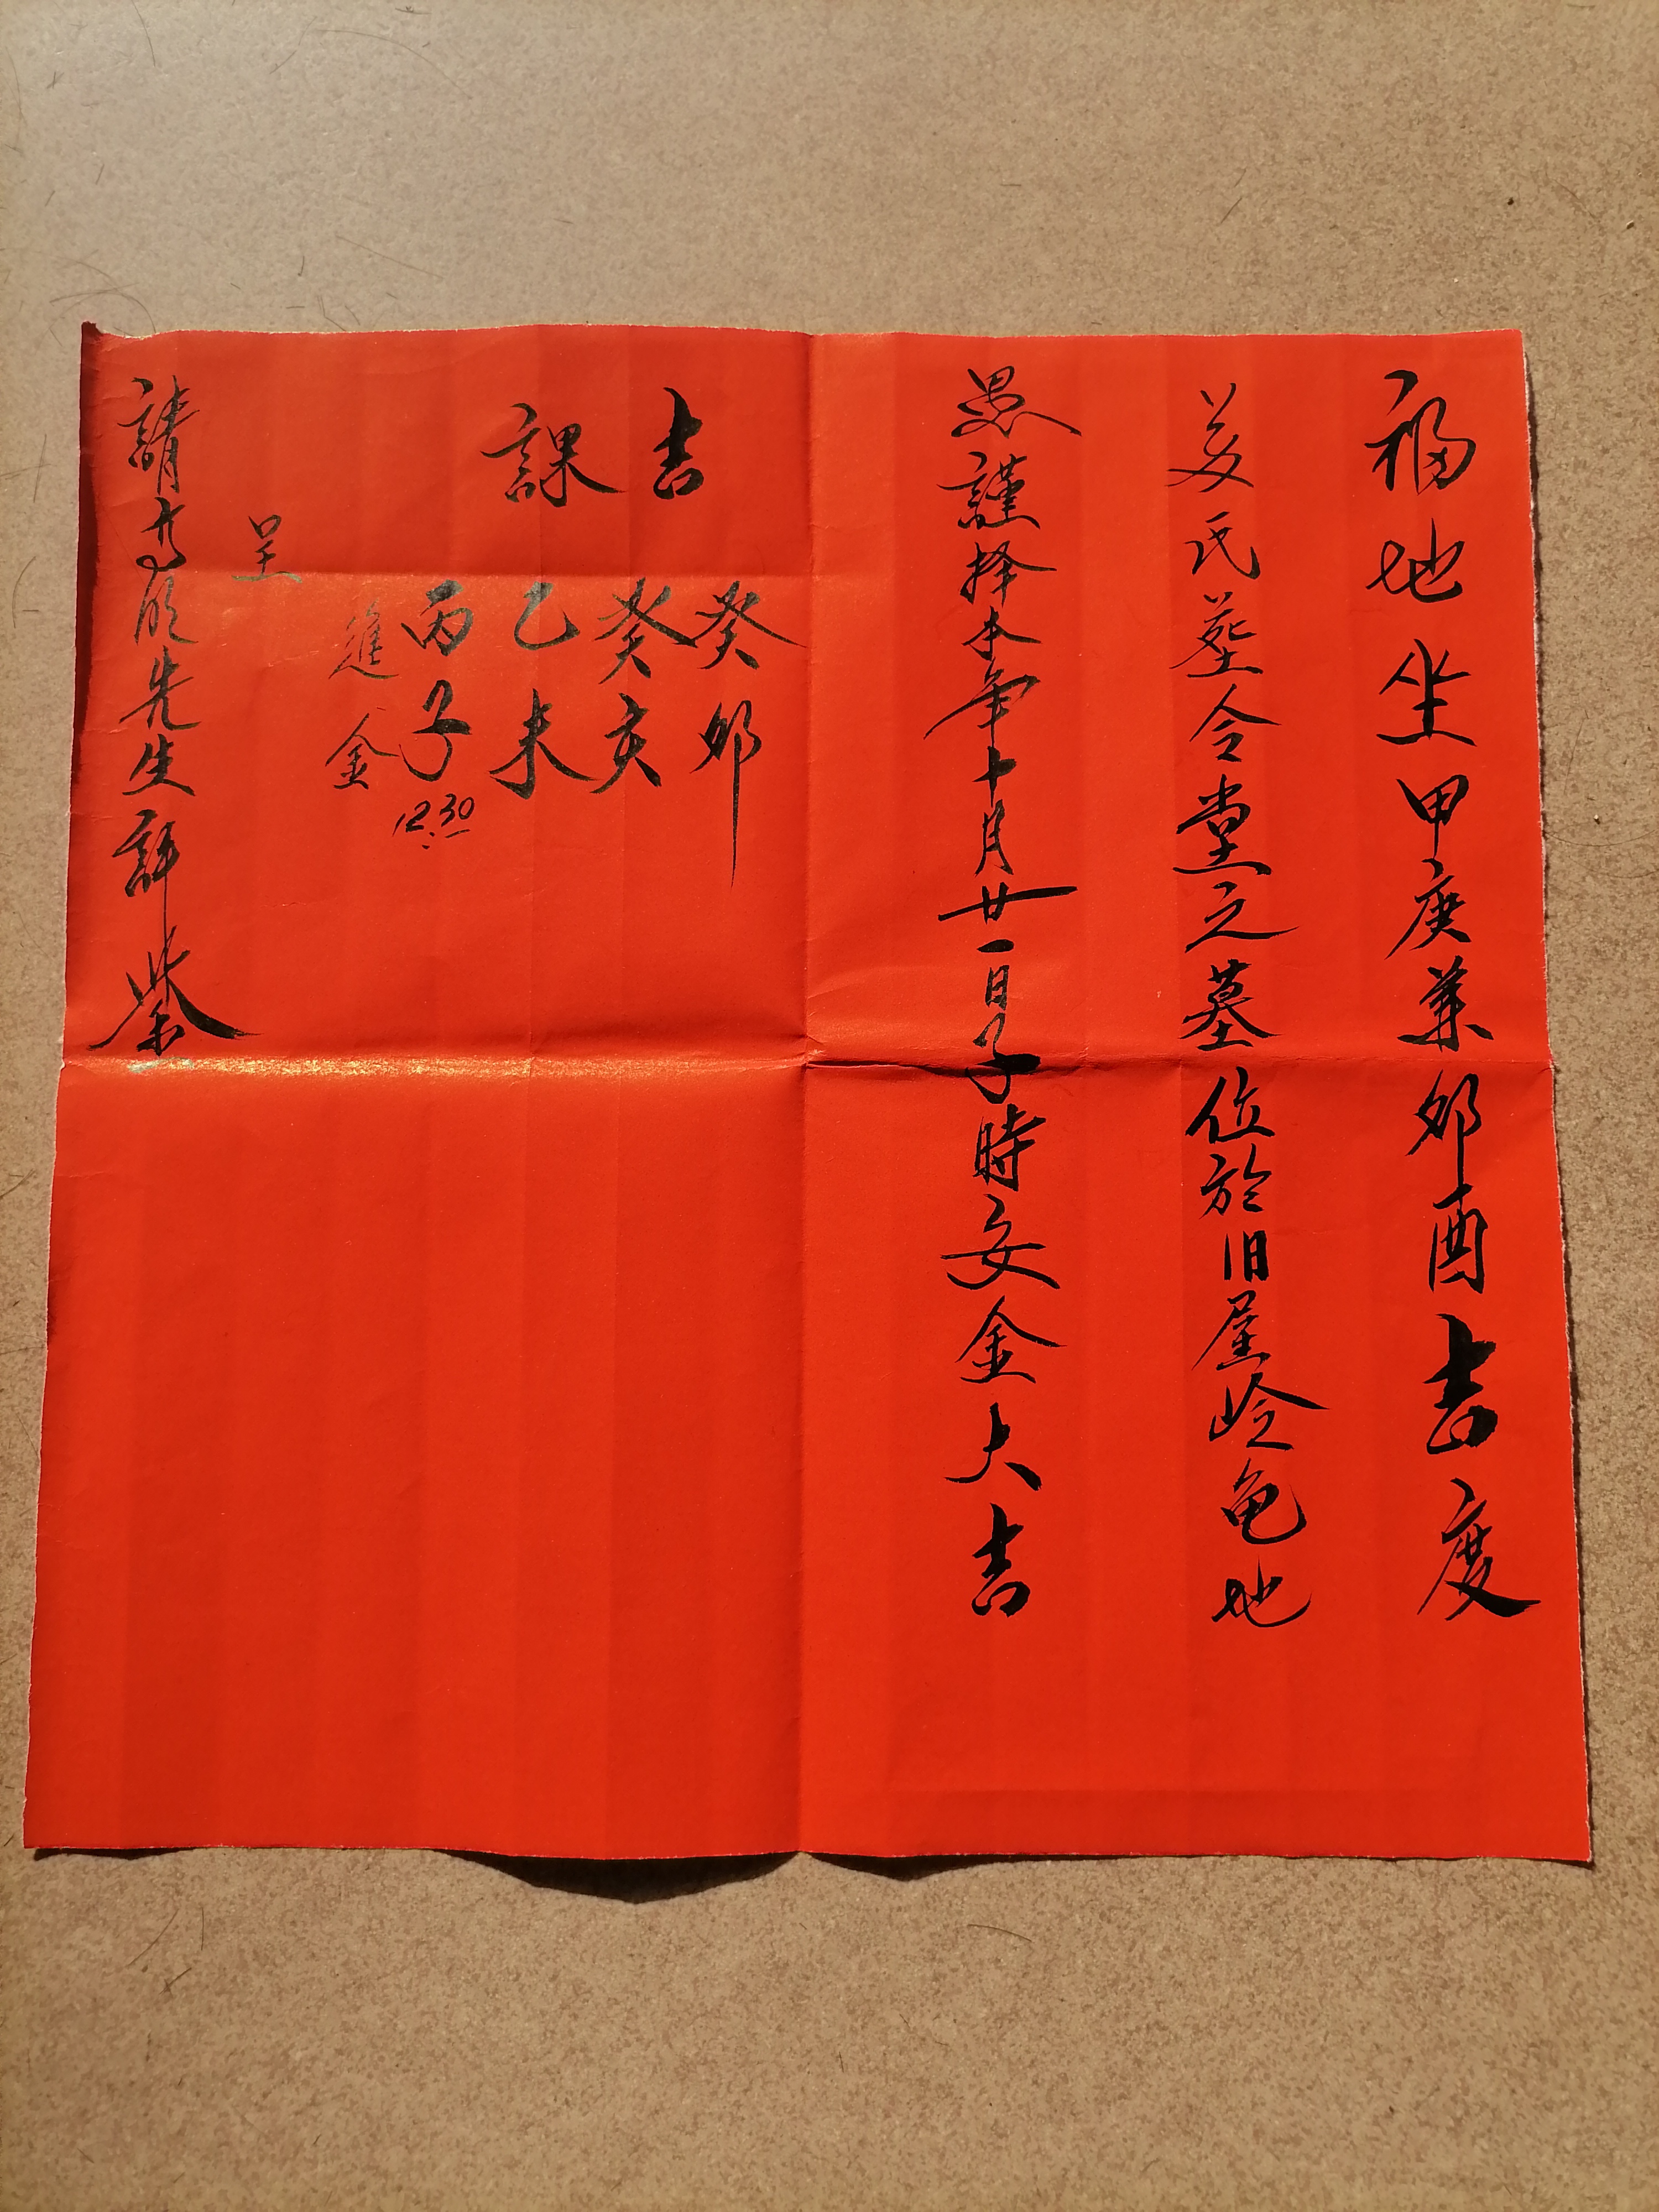 福地坐甲庚兼卯酉吉度
姜氏塟令堂之墓位於旧屋岭龟地
愚謹择本年十月廿一日子時安金大吉
吉課
癸卯
癸亥
乙未
丙子 12:30
進金
呈
請高明先生評鉴